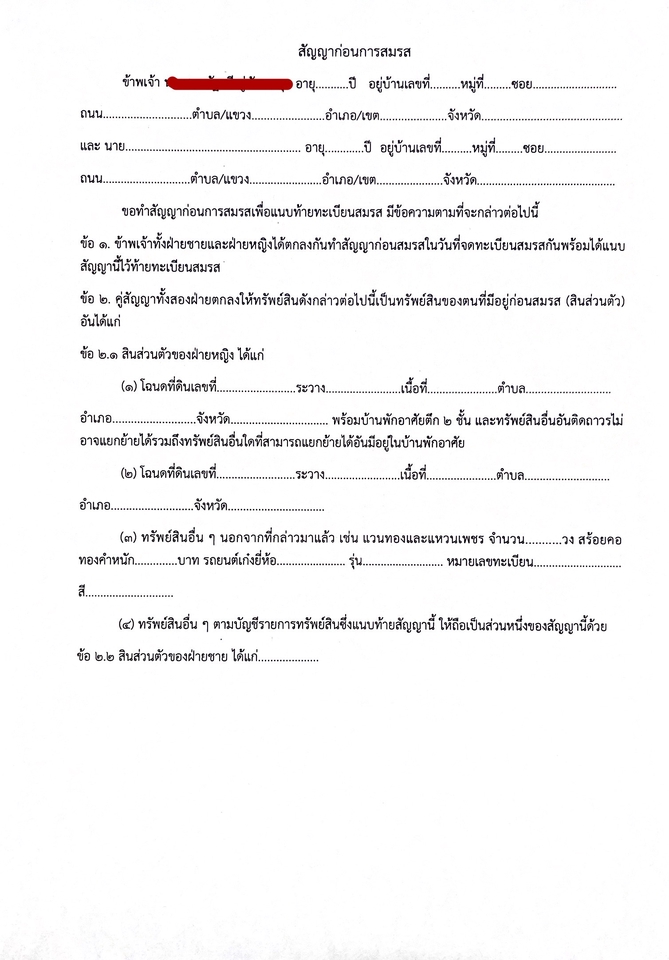 สัญญาก่อนการสมรส
ข้าพเจ้า อายุ...........ปี อยู่บ้านเลขที่..........หมู่ที่.........ซอย............................
ถนน.............................ตำบล/แขวง........................อำเภอ/เขต......................จังหวัด...............................................
และ นาย.......................................................... อายุ.............ปี อยู่บ้านเลขที่..........หมู่ที่.........ซอย........................
ถนน.............................ตำบล/แขวง........................อำเภอ/เขต......................จังหวัด..............................................
ขอทำสัญญาก่อนการสมรสเพื่อแนบท้ายทะเบียนสมรส มีข้อความตามที่จะกล่าวต่อไปนี้
ข้อ ๑. ข้าพเจ้าทั้งฝ่ายชายและฝ่ายหญิงได้ตกลงกันทำสัญญาก่อนสมรสในวันที่จดทะเบียนสมรสกันพร้อมได้แนบ
สัญญานี้ไว้ท้ายทะเบียนสมรส
ข้อ ๒. คู่สัญญาทั้งสองฝ่ายตกลงให้ทรัพย์สินดังกล่าวต่อไปนี้เป็นทรัพย์สินของตนที่มีอยู่ก่อนสมรส (สินส่วนตัว)
อันได้แก่
ข้อ ๒.๑ สินส่วนตัวของฝ่ายหญิง ได้แก่
(๑) โฉนดที่ดินเลขที่..........................ระวาง.........................เนื้อที่.......................ตำบล............................
อำเภอ............................จังหวัด................................ พร้อมบ้านพักอาศัยตึก ๒ ชั้น และทรัพย์สินอื่นอันติดถาวรไม่
อาจแยกย้ายได้รวมถึงทรัพย์สินอื่นใดที่สามารถแยกย้ายได้อันมีอยู่ในบ้านพักอาศัย
(๒) โฉนดที่ดินเลขที่..........................ระวาง.........................เนื้อที่.......................ตำบล............................
อำเภอ...........................จังหวัด................................
(๓) ทรัพย์สินอื่น ๆ นอกจากที่กล่าวมาแล้ว เช่น แวนทองและแหวนเพชร จำนวน...........วง สร้อยคอ
ทองคำหนัก..............บาท รถยนต์เก๋งยี่ห้อ....................... รุ่น.......................... หมายเลขทะเบียน.............................
สี.............................
(๔) ทรัพย์สินอื่น ๆ ตามบัญชีรายการทรัพย์สินซึ่งแนบท้ายสัญญานี้ ให้ถือเป็นส่วนหนึ่งของสัญญานี้ด้วย
ข้อ ๒.๒ สินส่วนตัวของฝ่ายชาย ได้แก่....................